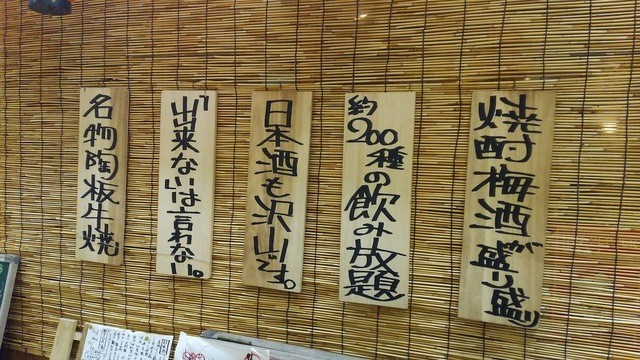 焼酎梅酒が盛り盛り
約200種の飲み放題
日本酒も沢山です。
"出来ない"は言わない。
名物陶板牛焼